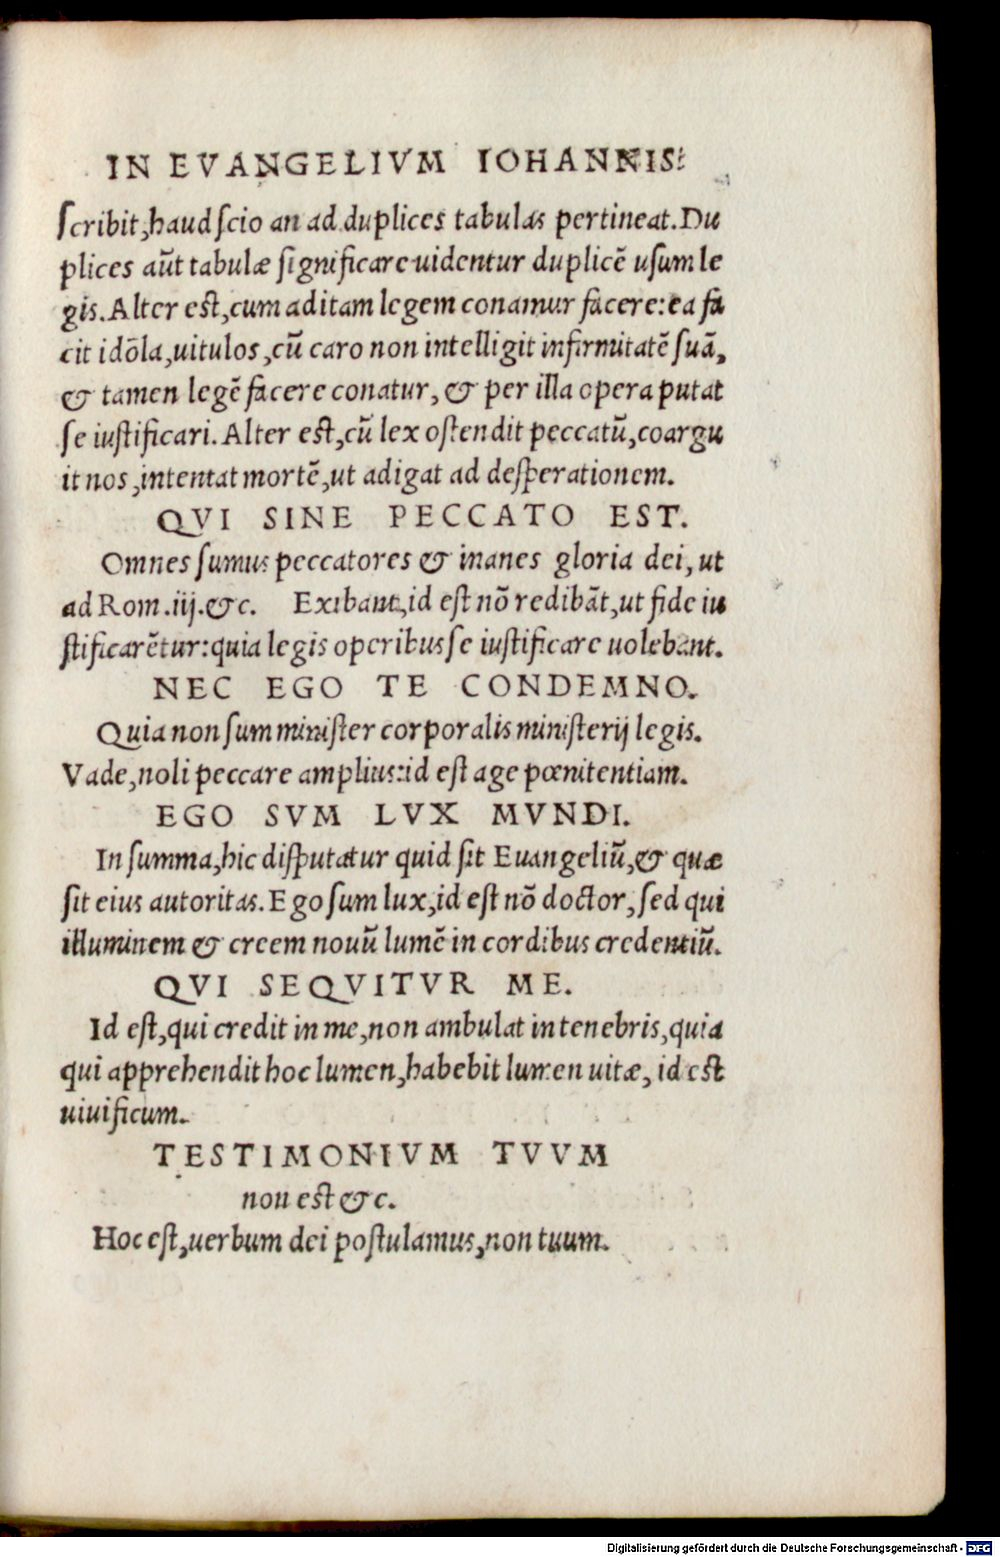 IN EVANGELIVM IOHANNIS.
scribit, haud scio an ad duplices tabulas pertineat. Du
plices aūt tabulæ significare uidentur duplicē usum le
gis. Alter est, cum aditam legem conamur facere: ea fa
cit idōla, uitulos, cū caro non intelligit infirmitatē suā,
& tamen legē facere conatur, & per illa opera putat
se iustificari. Alter est, cū lex ostendit peccatū, coargu
it nos, intentat mortē, ut adigat ad desperationem.
QVI SINE PECCATO EST.
Omnes sumus peccatores & inanes gloria dei, ut
ad Rom. iij. &c. Exibant, id est nō redibāt, ut fide iu
stificarētur: quia legis operibus se iustificare uolebant.
NEC EGO TE CONDEMNO.
Quia non sum minister corporalis ministerij legis.
Vade, noli peccare amplius: id est age pœnitentiam.
EGO SVM LVX MVNDI.
In summa, hic disputatur quid sit Euangeliū, & quæ
sit eius autoritas. Ego sum lux, id est nō doctor, sed qui
illuminem & creem nouū lumē in cordibus credentiū.
QVI SEQVITVR ME.
Id est, qui credit in me, non ambulat in tenebris, quia
qui apprehendit hoc lumen, habebit lumen uitæ, id est
uiuificum.
TESTIMONIVM TVVM
non est &c.
Hoc est, uerbum dei postulamus, non tuum.
Digitalisierung gefördert durch die Deutsche Forschungsgemeinschaft - DFG